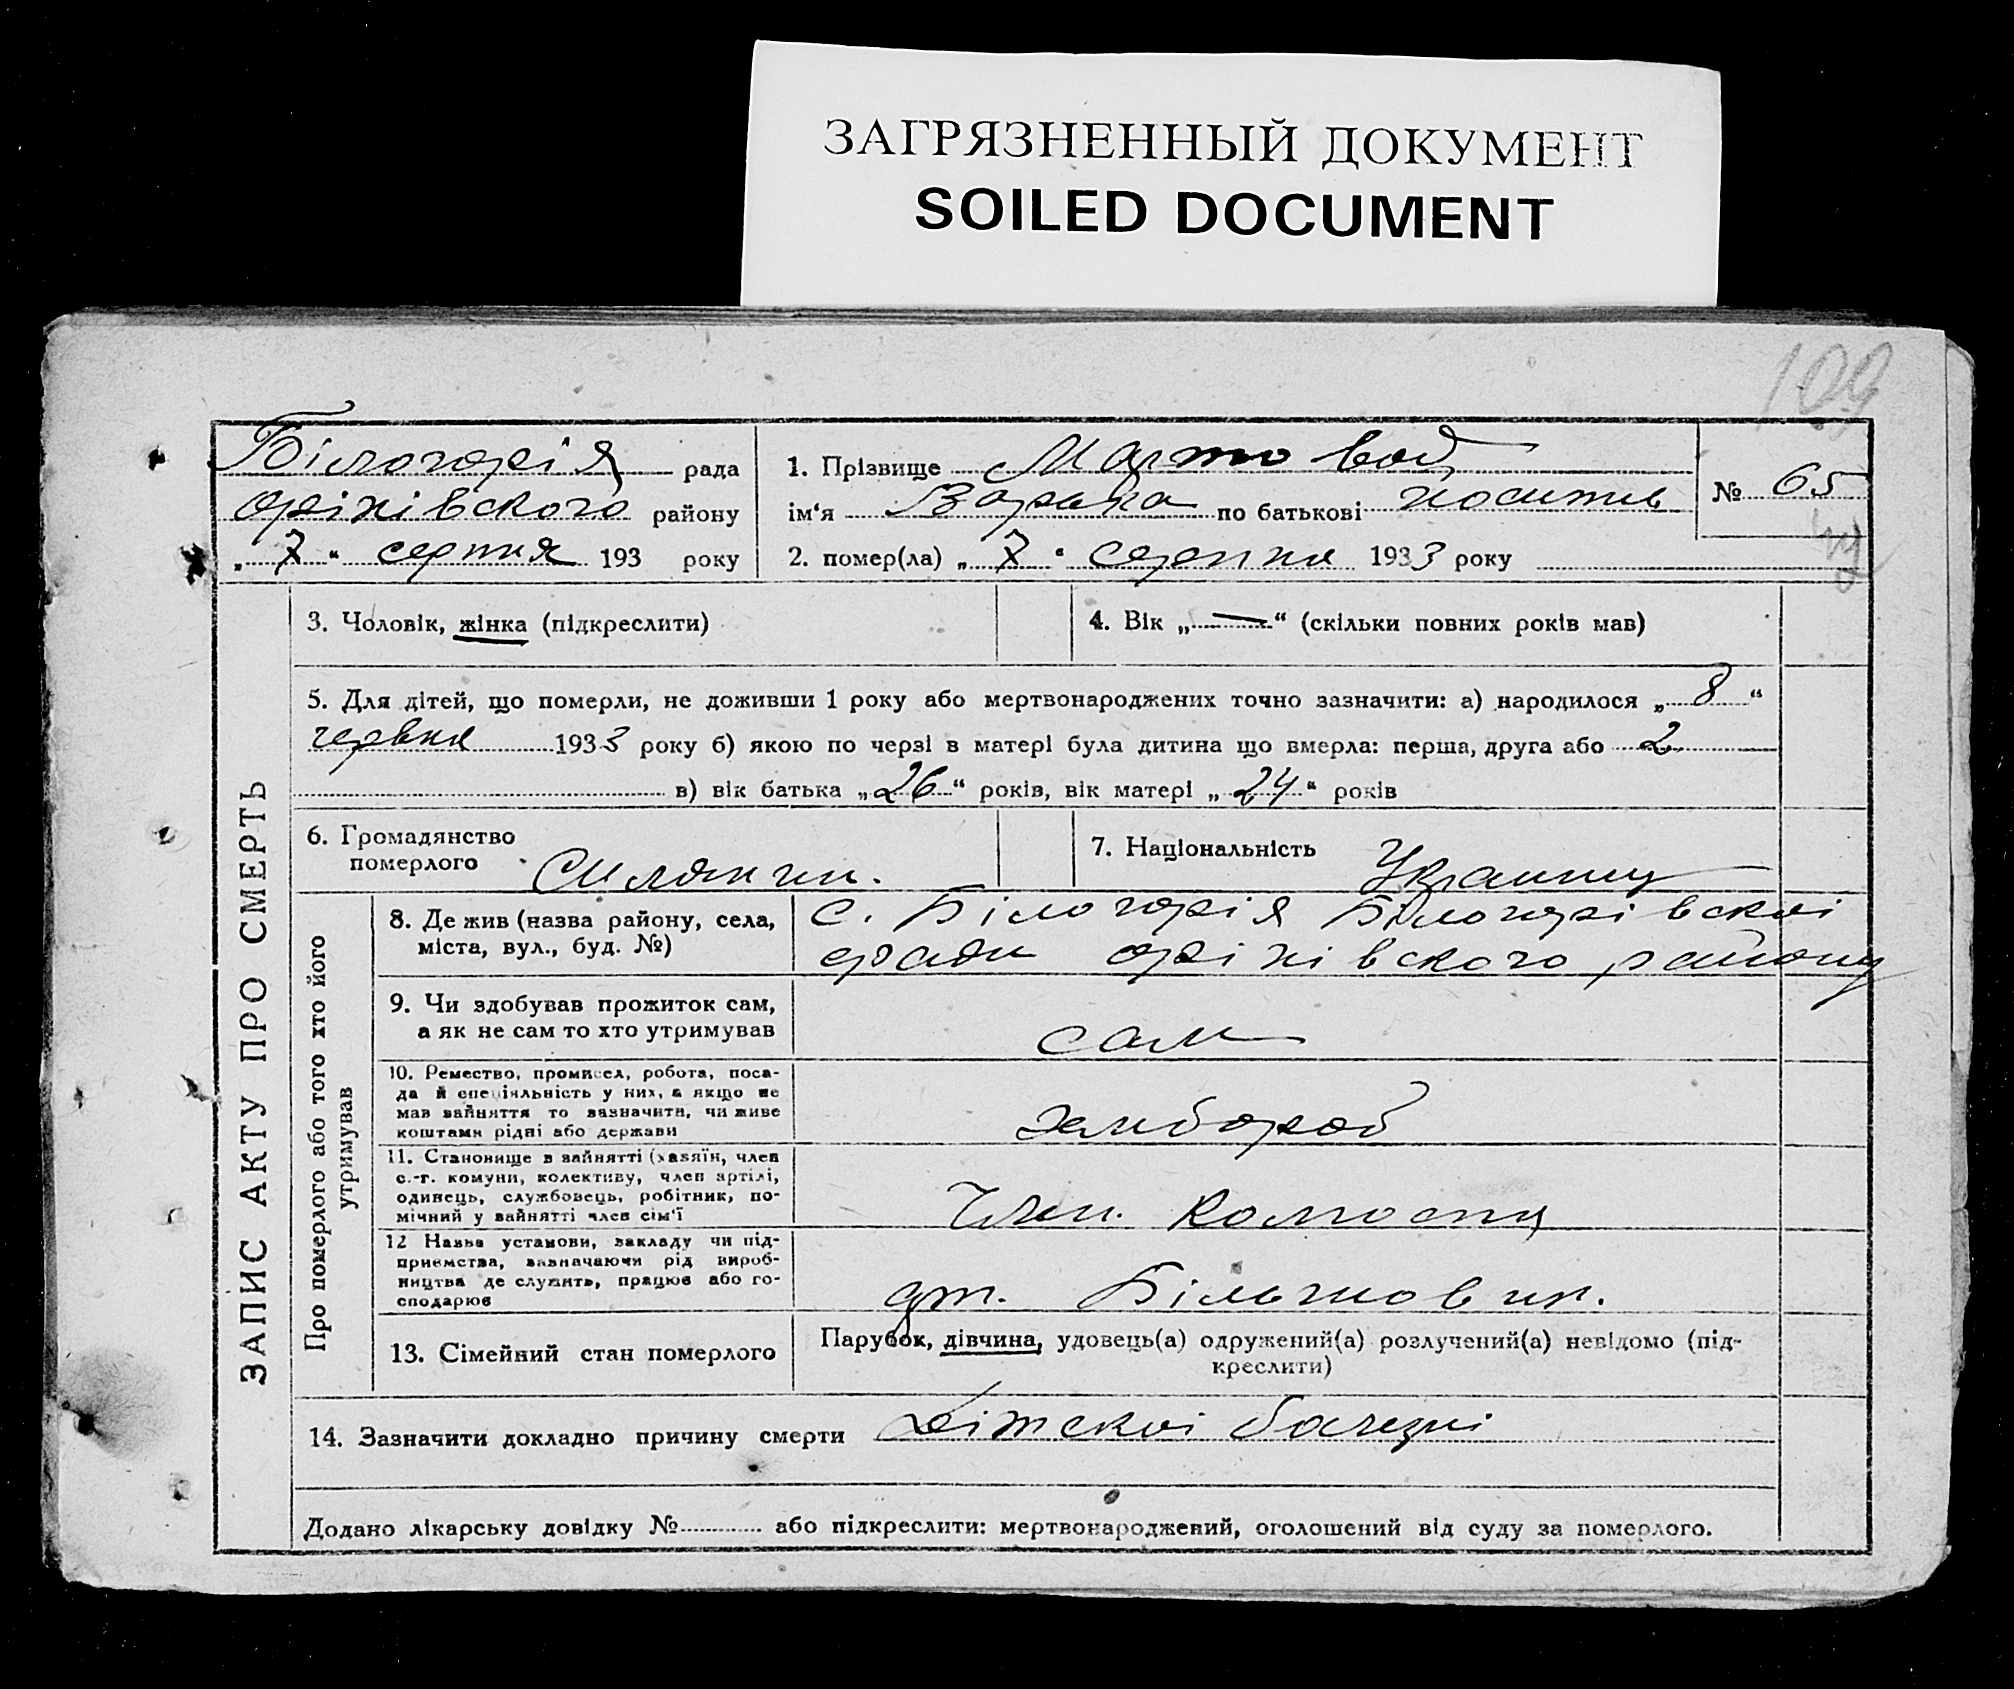 ЗАГРЯЗНЕННЫЙ ДОКУМЕНТ
SOILED DOCUMENT
109
Білогорія рада
оріхівского району
„ 7 “ серпня 193 року
1. Прізвище
ім‘я Варька по батькові
2. помер(ла) „ 7 “ серпня 1933 року
№ 65
ЗАПИС АКТУ ПРО СМЕРТЬ
3. Чоловік, жінка (підкреслити)
4. Вік „ — “ (скільки повних років мав)
5. Для дітей, що померли, не доживши 1 року або мертвонароджених точно зазначити: а) народилося „ 8 “
червня 1933 року б) якою по черзі в матері була дитина що вмерла: перша, друга або 2
в) вік батька „ 26 “ років, вік матері „ 24 “ років
6. Громадянство
померлого
7. Національність
Про померлого або того хто його
утримував
8. Де жив (назва району, села,
міста, вул., буд. №)
с. Білогорія Білогорівскоі
ради оріхівского району
9. Чи здобував прожиток сам,
а як не сам то хто утримував
сам
10. Ремество, промисел, робота, поса-
да й спеціяльність у них, а якщо не
мав зайняття то зазначити, чи живе
коштами рідні або держави
11. Становище в зайнятті (хазяїн, член
с.-г. комуни, колективу, член артілі,
одинець, службовець, робітник, по-
мічний у зайнятті член сім‘ї
Член.
12 Назва установи, закладу чи під-
приємства, зазначаючи рід вироб-
ництва де служить, працює або го-
сподарює
арт. Більшовик.
13. Сімейний стан померлого
Парубок, дівчина, удовець(а) одружений(а) розлучений(а) невідомо (під-
креслити)
14. Зазначити докладно причину смерти Дітскоі болезні
Додано лікарську довідку № або підкреслити: мертвонароджений, оголошений від суду за померлого.